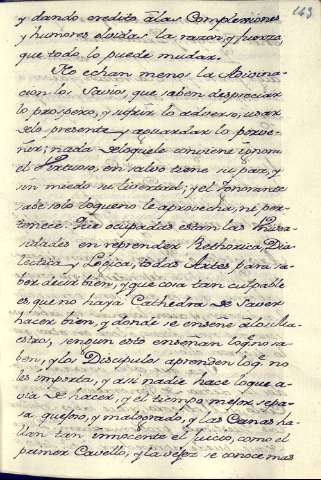 143
y dando credito á las Complexiones
y humores olvidas la razon, y fuerzo,
que todo lo puede mudar.
No echan menos la Adivina-
cion los Savios, que saben despreciar
lo prospero, y sufrir lo adverso, usar
de lo presente y aguardar lo porve-
nir; nada de loquele conviene ignora
el Virtuoso, en salvo tiene su paz, y
sin miedo su livertad; y el Ignorante
sabe solo loqueno le aprovecha, ni per-
tenece. Que ocupadas estan las Univer-
sidades en reprender Rethorica, Dia-
lectica y Logica, todas Artes para sa-
ber decir bien, y que cosa tan culpable
es que no haya Cathedra de Saver
hacer bien, y donde se enseñe á los Ma-
estros, segun esto enseñan loq.e no sa-
ben, y los Discipulos aprenden loq.e no
les importa, y asi nadie hace loque a-
via de hacer, y el tiempo mejor se pa-
sa quejoso, y malogrado, y las Canas ha-
llan tan innocente el juicio, como el
primer Cavello, y la vejez se conoce mas